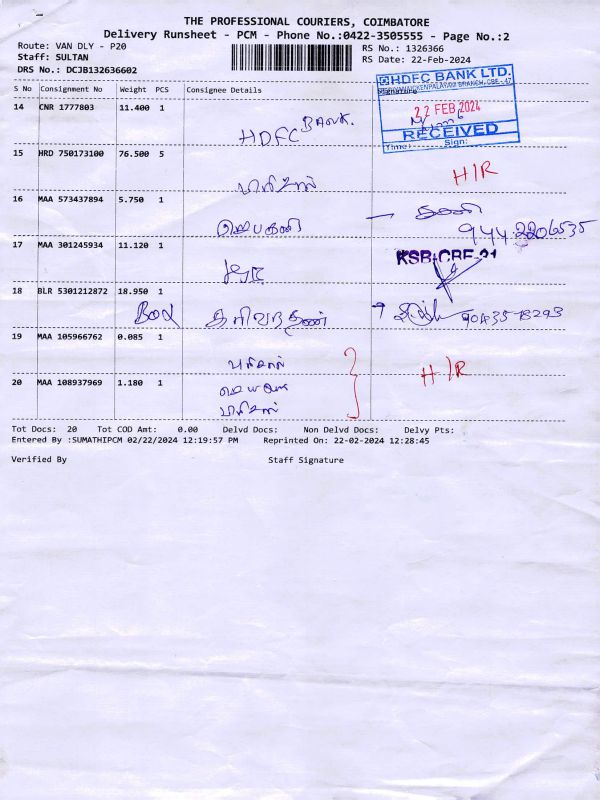 THE PROFESSIONAL COURIERS, COIMBATORE
Delivery Runsheet - PCM - Phone No.:0422-3505555 - Page No.:2
Route: VAN DLY - P20 RS No.: 1326366
Staff: SULTAN RS Date: 22-Feb-2024
DRS No.: DCJB132636602
S No Consignment No Weight PCS Consignee Details Signature
HDFC BANK LTD.
14 CNR 1777803 11.400 1
22 FEB 2024
HDFC BANK.
RECEIVED
Time: Sign:
15 HRD 750173100 76.500 5
H/R
16 MAA 573437894 5.750 1
944 2206535
17 MAA 301245934 11.120 1
KSB-CBE-21
18 BLR 5301212872 18.950 1
Box
90435 78293
19 MAA 105966762 0.085 1
H/R
20 MAA 108937969 1.180 1
Tot Docs: 20 Tot COD Amt: 0.00 Delvd Docs: Non Delvd Docs: Delvy Pts:
Entered By :SUMATHIPCM 02/22/2024 12:19:57 PM Reprinted On: 22-02-2024 12:28:45
Verified By Staff Signature